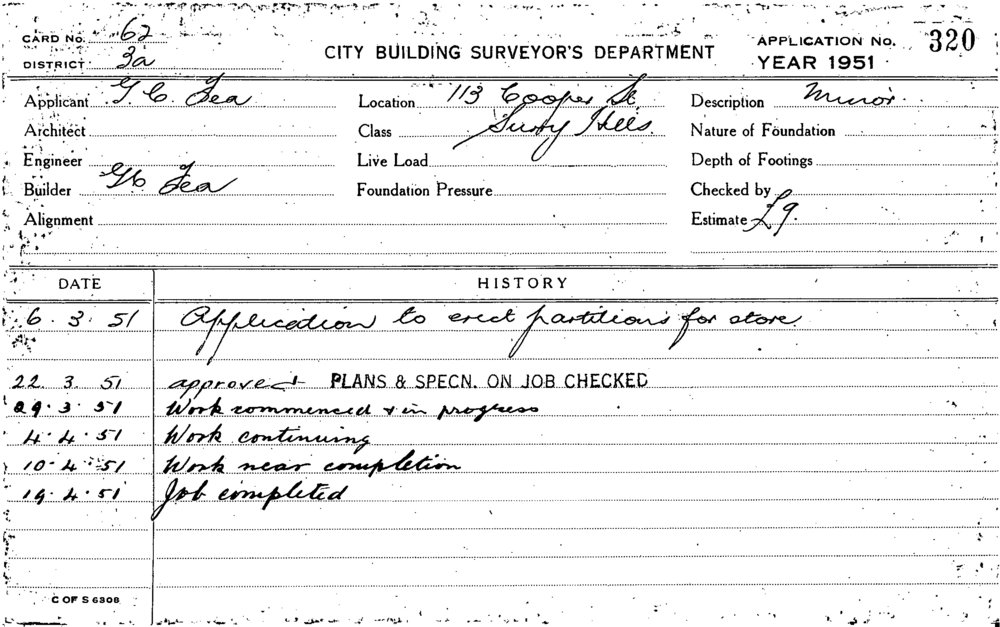 CARD No. 62
DISTRICT 3a
CITY BUILDING SURVEYOR'S DEPARTMENT
APPLICATION No. 320
YEAR 1951
Applicant G. C. Fea Location 113 Cooper St Description Minor
Architect Class Surry Hills. Nature of Foundation
Engineer Live Load Depth of Footings
Builder G C. Fea Foundation Pressure Checked by
Alignment Estimate £9.
DATE HISTORY
6. 3. 51 Application to erect partitions for store.
22. 3. 51 approved PLANS & SPECN. ON JOB CHECKED
29. 3. 51 Work commenced & in progress
4. 4. 51 Work continuing
10. 4. 51 Work near completion
19. 4. 51 Job completed
C OF S 6308